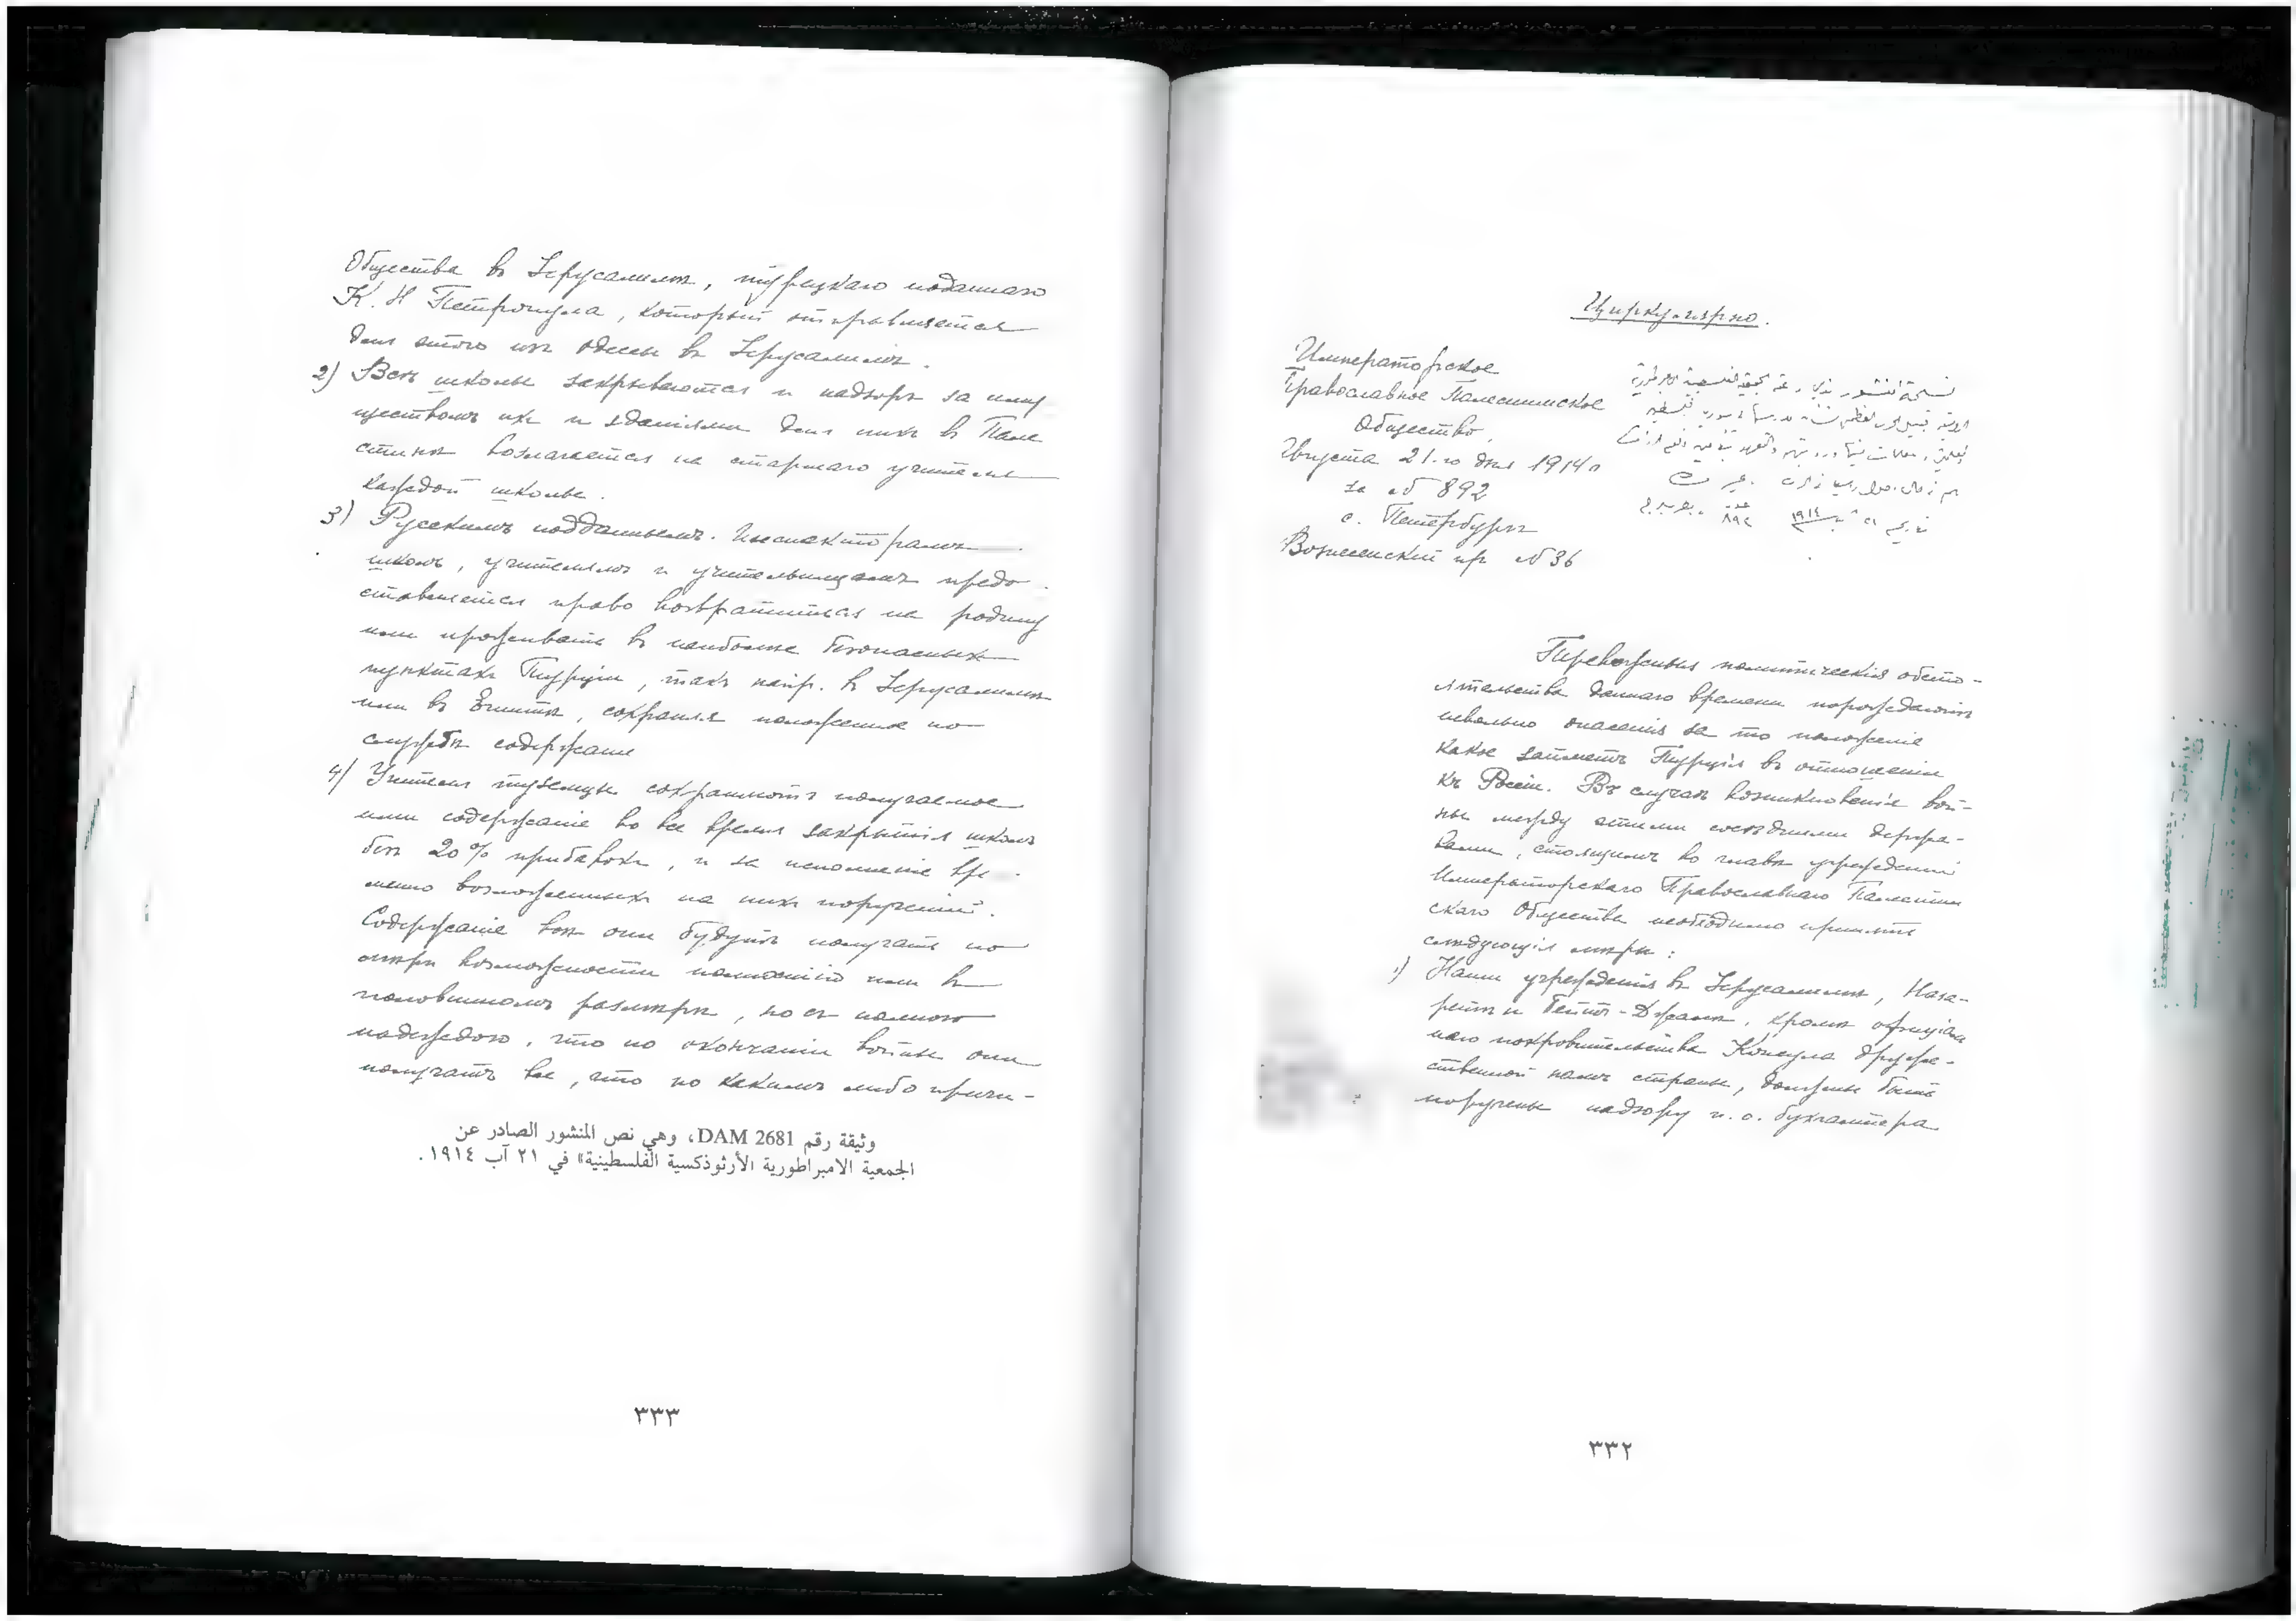 Циркулярно.
Императорское
Православное Палестинское
Общество,
Августа 21-го дня 1914 г
за № 892
с. Петербургъ
Вознесенскій пр № 36
نسخة المنشور الذي
في سوريا وفلسطين
تاريخ ٢١ آب ١٩١٤ عدد ٨٩٢
Тревожныя политическія обсто-
ятельства даннаго времени порождаютъ
невольно опасенія за то положеніе
какое займетъ Турція въ отношеніи
къ Россіи. Въ случаѣ возникновенія вой-
ны между этими сосѣдними держа-
вами, стоящимъ во главѣ учрежденій
Императорскаго Православнаго Палестин
скаго Общества необходимо принять
слѣдующія мѣры:
1) Наши учрежденія въ Іерусалимѣ, Наза-
ретѣ и Бейтъ-Джалѣ, кромѣ офиціаль
наго покровительства Консула друже-
ственной намъ страны, должны быть
поручены надзору и. о. бухгалтера
٣٣٢
Общества въ Іерусалимѣ, турецкаго поданнаго
К. Н Петропула, который отправляется
для этого изъ Одессы въ Іерусалимъ.
2) Всѣ школы закрываются и надзоръ за иму
ществомъ ихъ и зданіями для нихъ въ Пале
стинѣ возлагается на старшаго учителя
каждой школы.
3) Русскимъ подданнымъ. Инспекторамъ
школъ, учителямъ и учительницамъ предо
ставляется право возвратиться на родину
или проживать въ наиболѣе безопасныхъ
пунктахъ Турціи, такъ напр. въ Іерусалимѣ
или въ Египтѣ, сохраняя положенное по
службѣ содержаніе
4) Учителя туземцы сохраняютъ получаемое
ими содержаніе во все время закрытія школъ
безъ 20% прибавки, и за исполненіе вре
менно возложенныхъ на нихъ порученій.
Содержаніе все они будутъ получать по
мѣрѣ возможности полностію или въ
половинномъ размѣрѣ, но съ полною
надеждою, что по окончаніи войны они
получатъ все, что по какимъ либо причи-
وثيقة رقم DAM 2681، وهي نص المنشور الصادر عن
الجمعية الامبراطورية الأرثوذكسية الفلسطينية» في ٢١ آب ١٩١٤.
٣٣٣